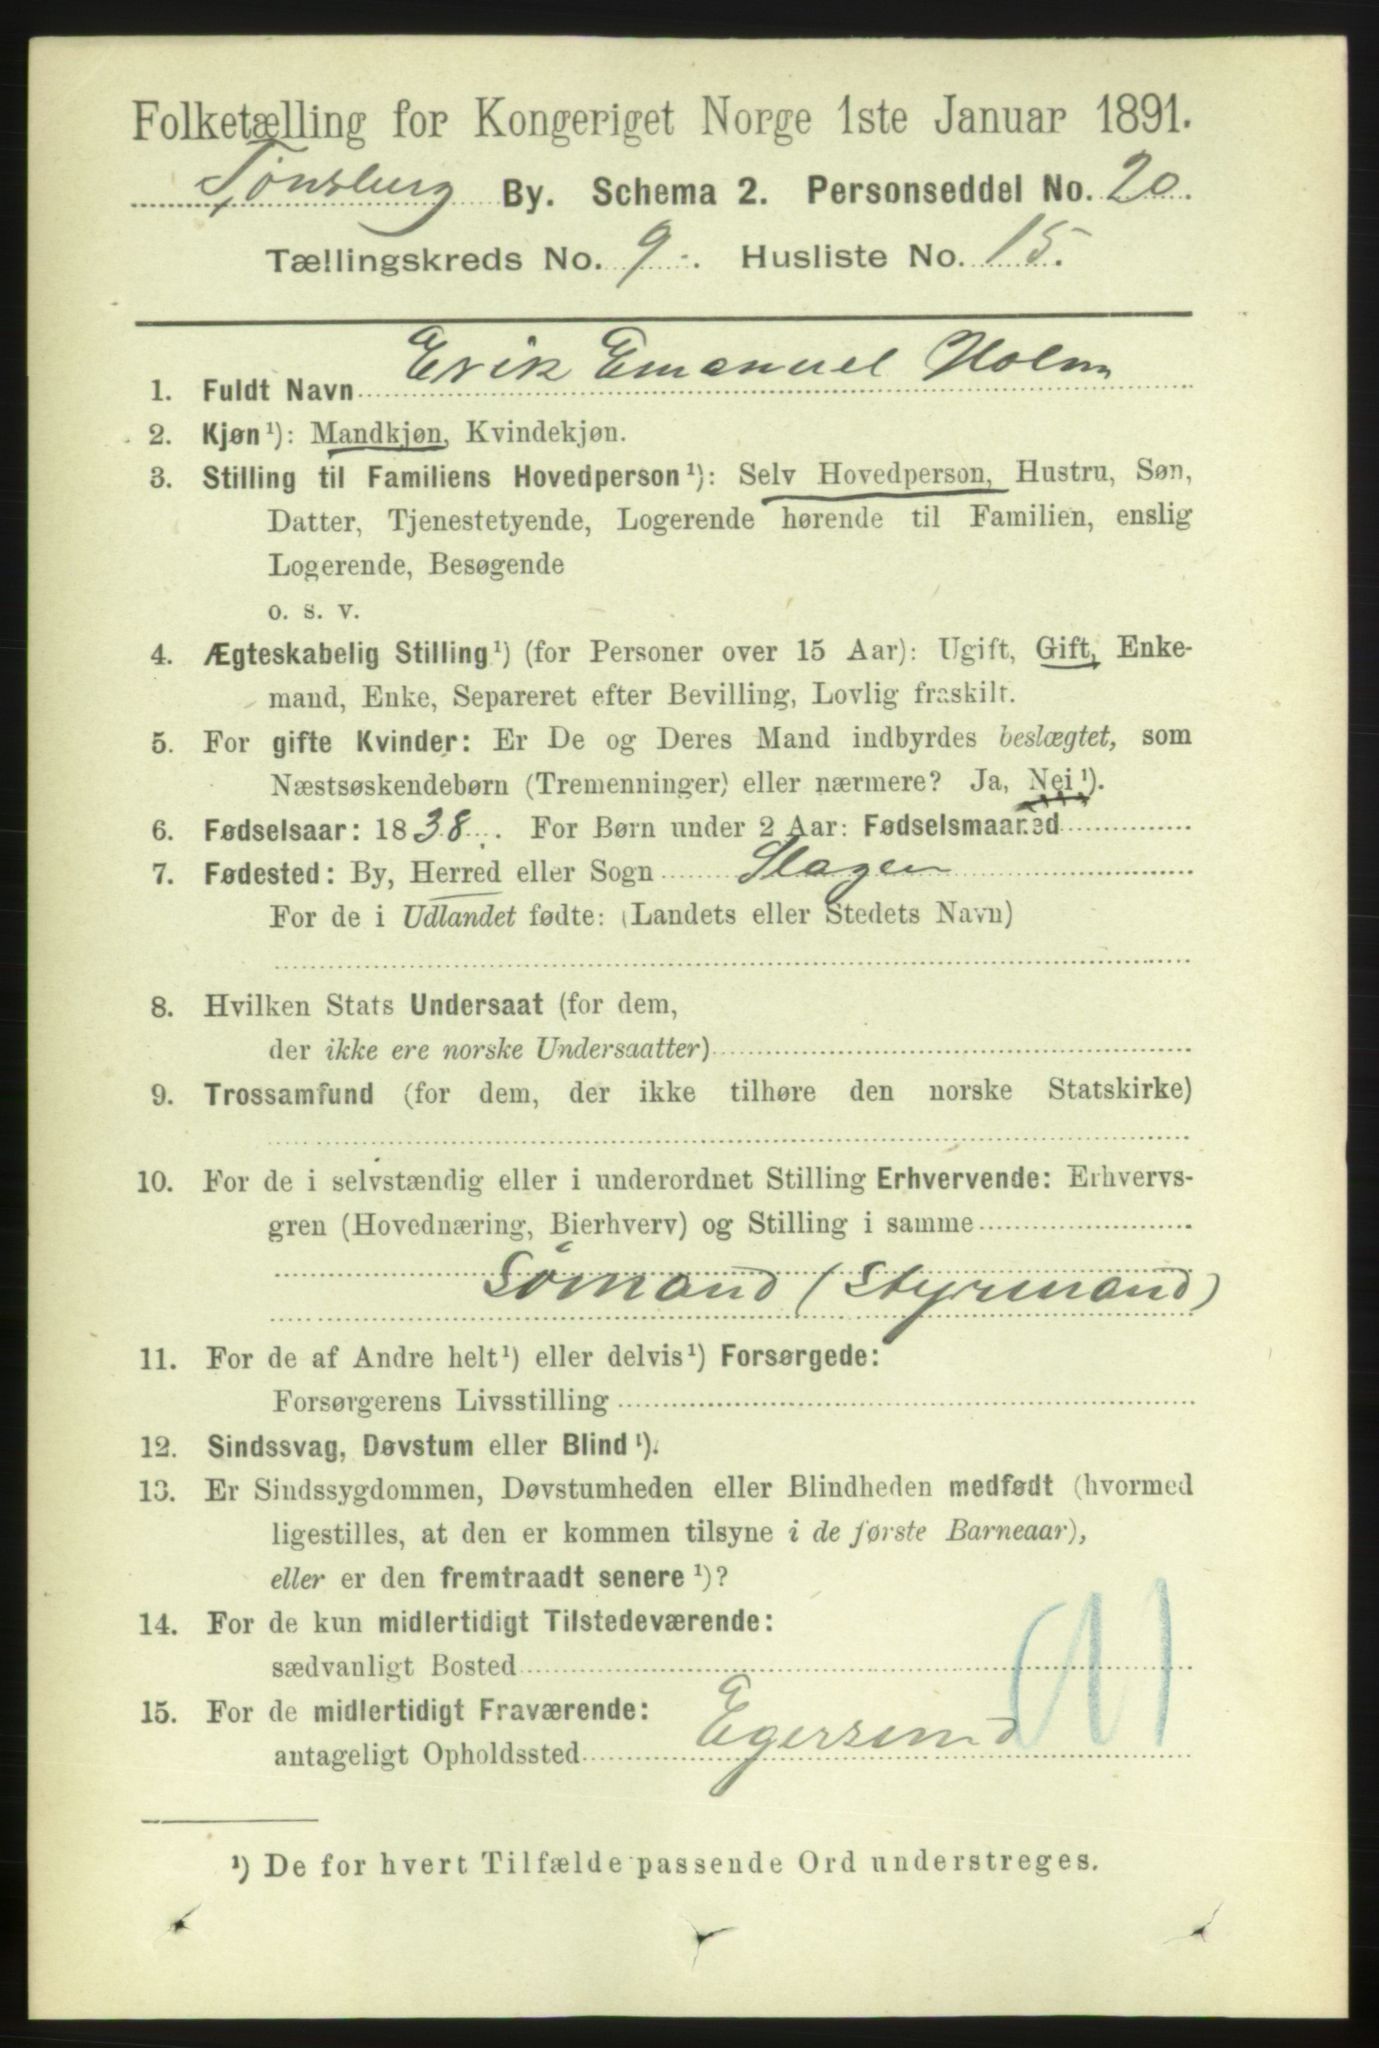 Folketælling for Kongeriget Norge 1ste Januar 1891.
Tønsberg By. Schema 2. Personseddel No. 20.
Tællingskreds No. 9. Husliste No. 15.
1. Fuldt Navn Erik Emanuel Holm
2. Kjøn¹): Mandkjøn, Kvindekjøn.
3. Stilling til Familiens Hovedperson¹): Selv Hovedperson, Hustru, Søn,
Datter, Tjenestetyende, Logerende hørende til Familien, enslig
Logerende, Besøgende
o. s. v.
4. Ægteskabelig Stilling¹) (for Personer over 15 Aar): Ugift, Gift, Enke-
mand, Enke, Separeret efter Bevilling, Lovlig fraskilt.
5. For gifte Kvinder: Er De og Deres Mand indbyrdes beslægtet, som
Næstsøskendebørn (Tremenninger) eller nærmere? Ja, Nei¹).
6. Fødselsaar: 1838. For Børn under 2 Aar: Fødselsmaaned
7. Fødested: By, Herred eller Sogn Slagen
For de i Udlandet fødte: (Landets eller Stedets Navn)
8. Hvilken Stats Undersaat (for dem,
der ikke ere norske Undersaatter)
9. Trossamfund (for dem, der ikke tilhøre den norske Statskirke)
10. For de i selvstændig eller i underordnet Stilling Erhvervende: Erhvervs-
gren (Hovednæring, Bierhverv) og Stilling i samme
Sømand (Styrmand)
11. For de af Andre helt¹) eller delvis¹) Forsørgede:
Forsørgerens Livsstilling
12. Sindssvag, Døvstum eller Blind¹).
13. Er Sindssygdommen, Døvstumheden eller Blindheden medfødt (hvormed
ligestilles, at den er kommen tilsyne i de første Barneaar),
eller er den fremtraadt senere¹)?
14. For de kun midlertidigt Tilstedeværende:
sædvanligt Bosted
15. For de midlertidigt Fraværende:
antageligt Opholdssted Egersund
¹) De for hvert Tilfælde passende Ord understreges.